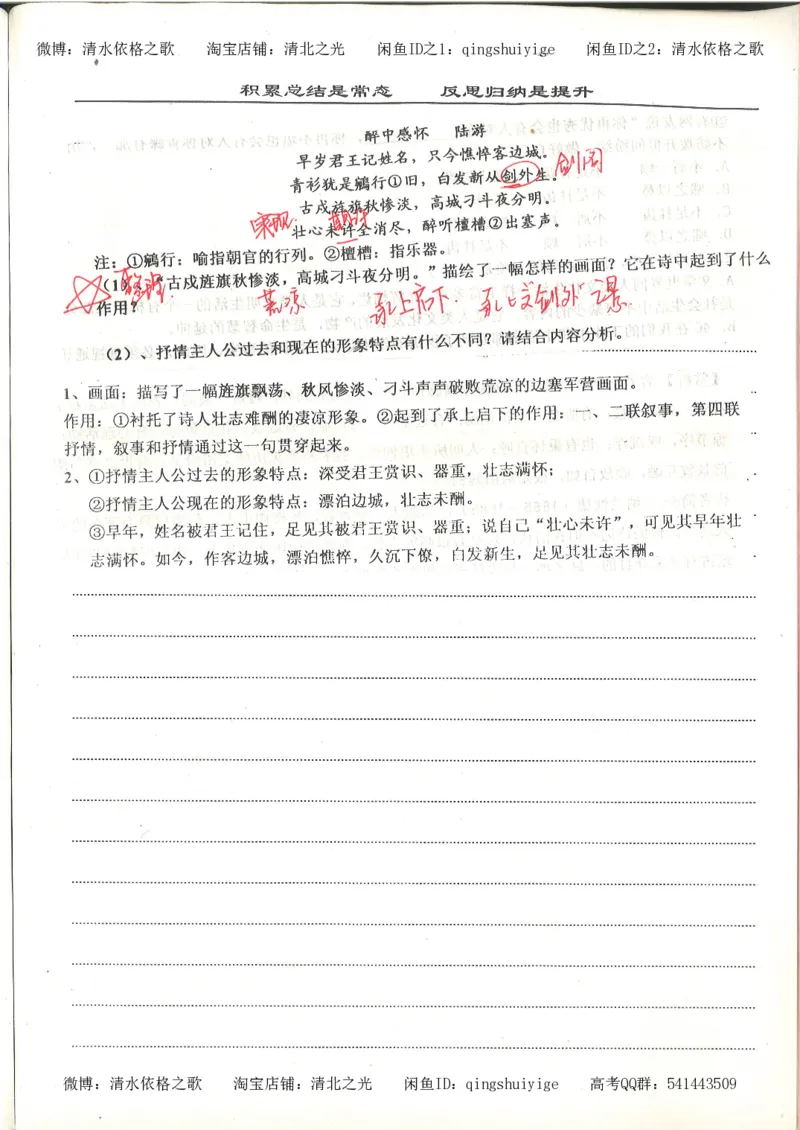 微博：清水依格之歌 淘宝店铺：清北之光 闲鱼ID之1：qingshuiyige 闲鱼ID之2：清水依格之歌
积累总结是常态 反思归纳是提升
醉中感怀 陆游
早岁君王记姓名，只今憔悴客边城。
青衫犹是鵷行①旧，白发新从剑外生。 剑阁
古戍旌旗秋惨淡，高城刁斗夜分明。
壮心未许全消尽，醉听檀槽②出塞声。
注：①鵷行：喻指朝官的行列。②檀槽：指乐器。
（1）、“古戍旌旗秋惨淡，高城刁斗夜分明。”描绘了一幅怎样的画面？它在诗中起到了什么
作用？
承上启下．
（2）、抒情主人公过去和现在的形象特点有什么不同？请结合内容分析。
1、画面：描写了一幅旌旗飘荡、秋风惨淡、刁斗声声破败荒凉的边塞军营画面。
作用：①衬托了诗人壮志难酬的凄凉形象。②起到了承上启下的作用：一、二联叙事，第四联
抒情，叙事和抒情通过这一句贯穿起来。
2、①抒情主人公过去的形象特点：深受君王赏识、器重，壮志满怀；
②抒情主人公现在的形象特点：漂泊边城，壮志未酬。
③早年，姓名被君王记住，足见其被君王赏识、器重；说自己“壮心未许”，可见其早年壮
志满怀。如今，作客边城，漂泊憔悴，久沉下僚，白发新生，足见其壮志未酬。
微博：清水依格之歌 淘宝店铺：清北之光 闲鱼ID：qingshuiyige 高考QQ群：541443509